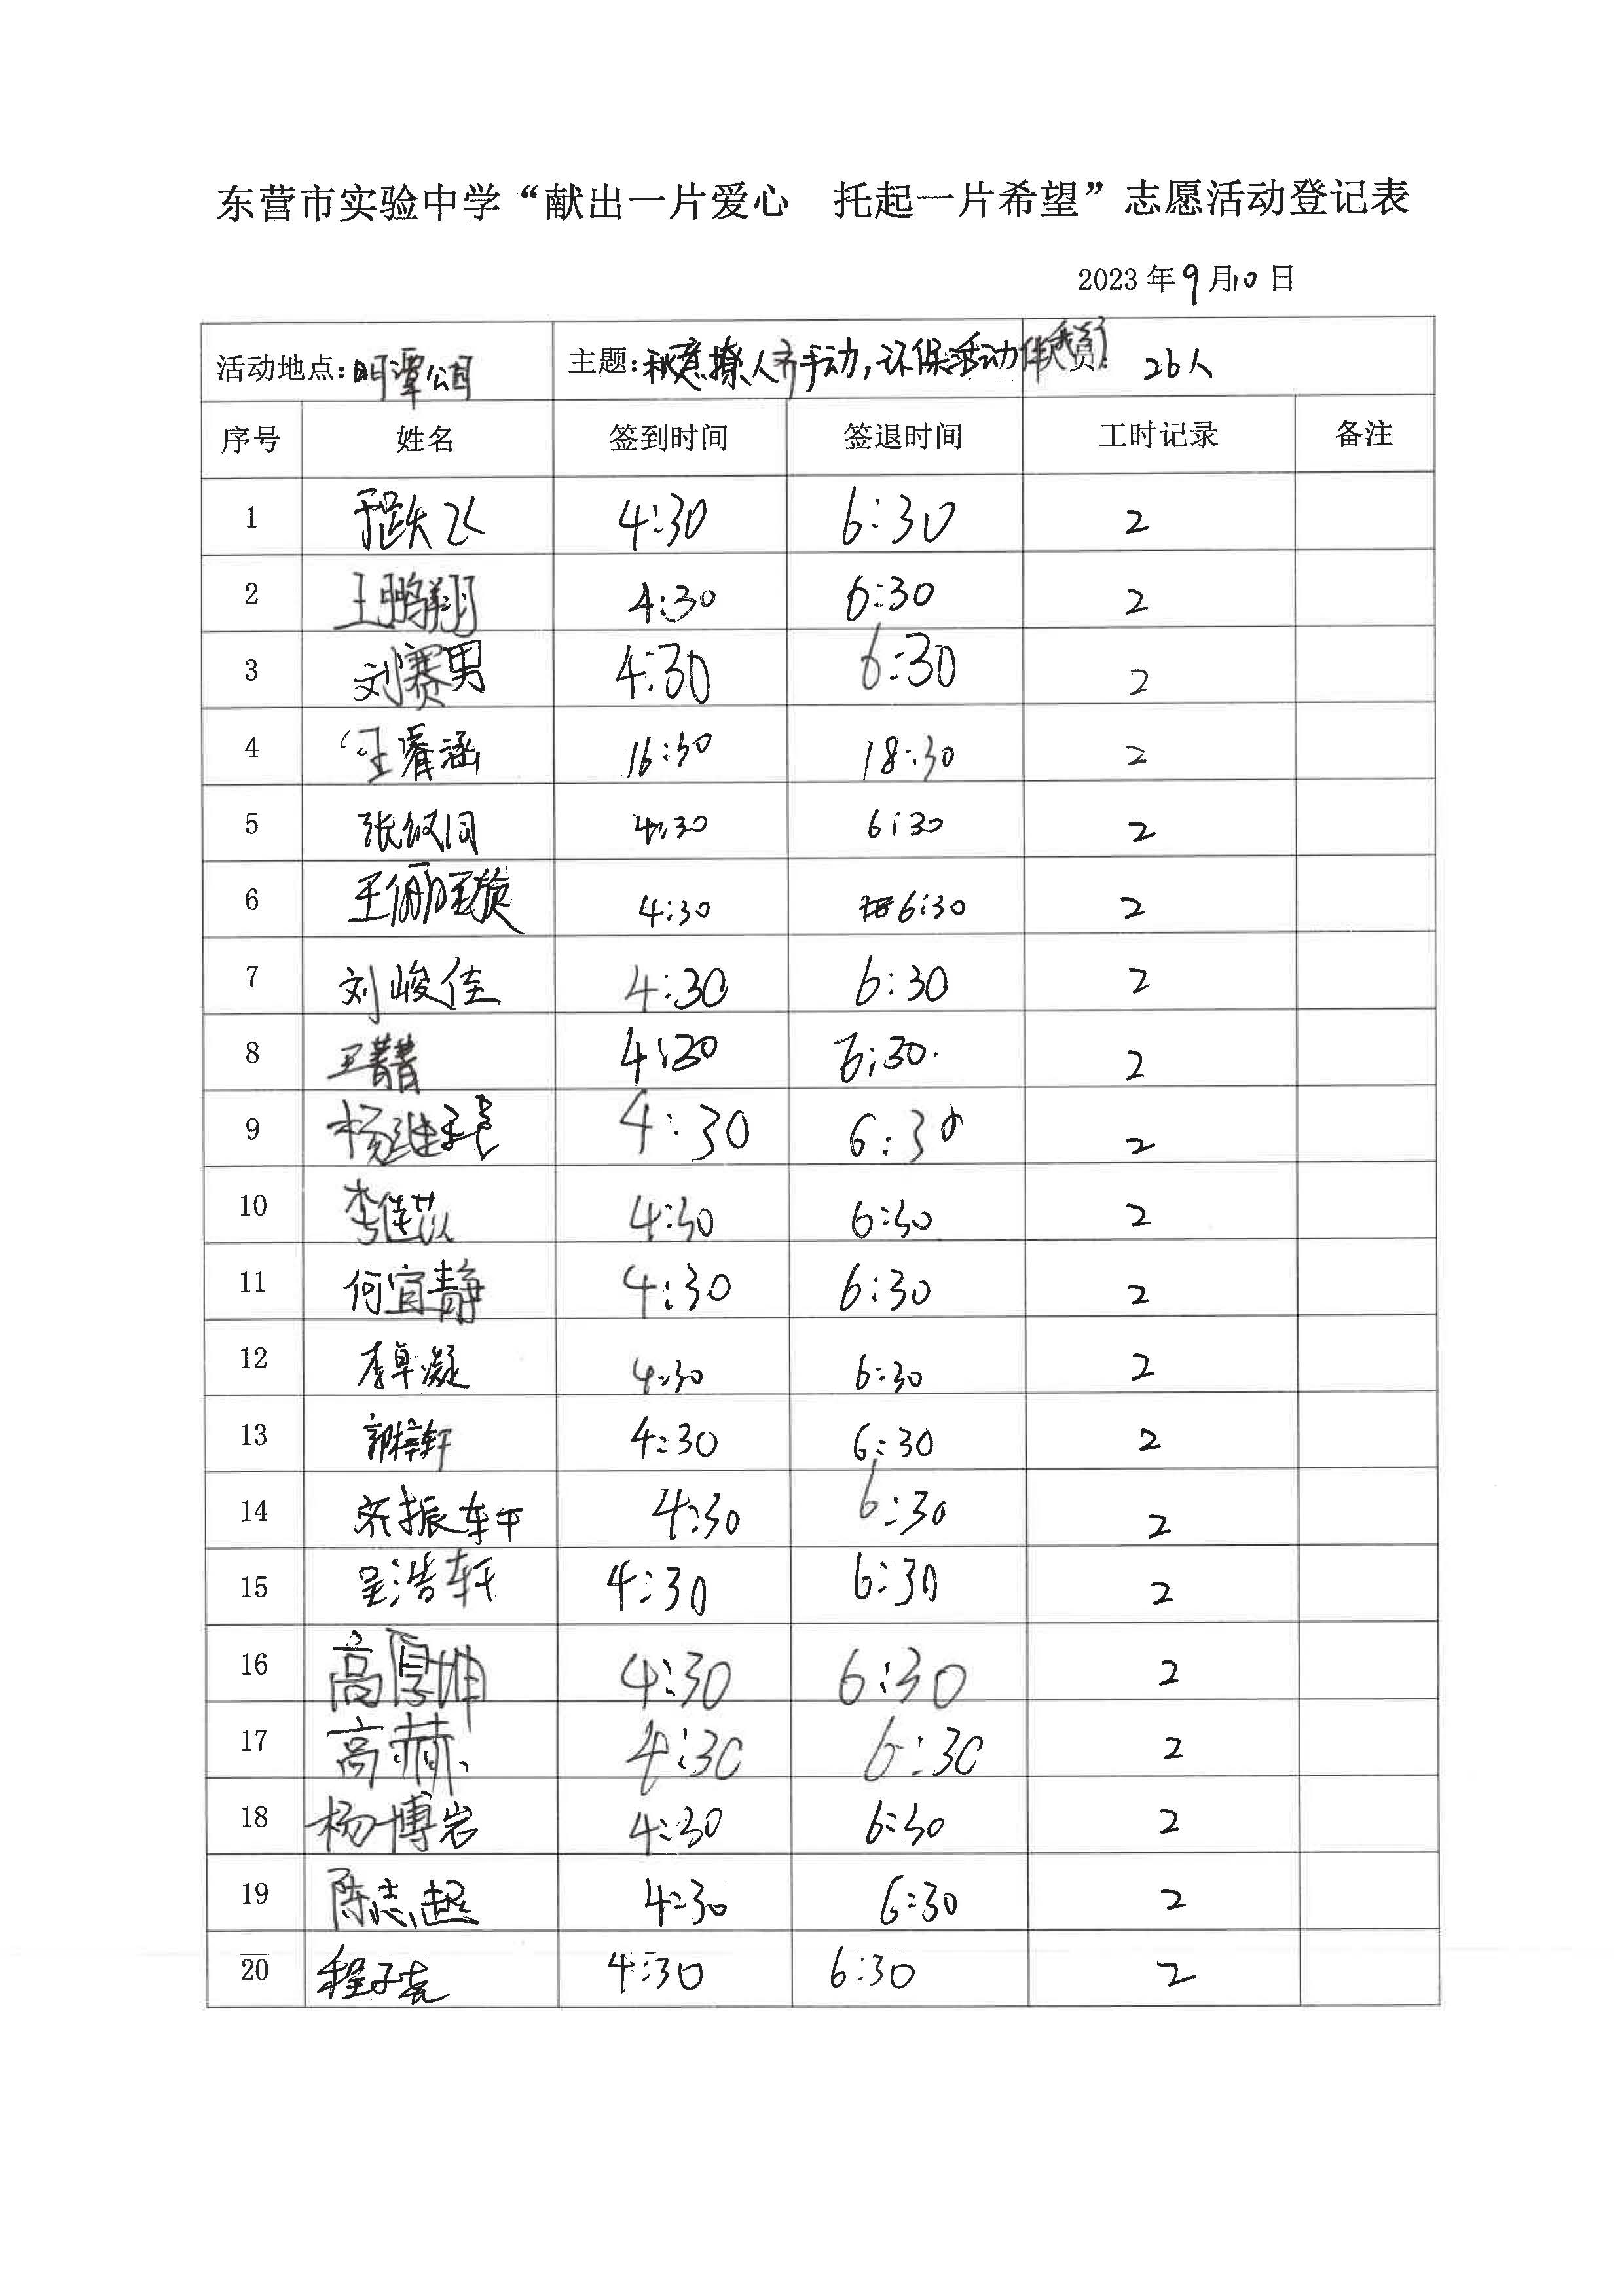 东营市实验中学“献出一片爱心　托起一片希望”志愿活动登记表
2023 年 9 月 10 日
活动地点：明潭公园 主题：秋意撩人齐手动，环保活动伴我行 人员： 26人
序号 姓名 签到时间 签退时间 工时记录 备注
1 4:30 6:30 2
2 王鹏翔 4:30 6:30 2
3 刘赛男 4:30 6:30 2
4 任睿涵 16:30 18:30 2
5 张 4:30 6:30 2
6 王俪璇 4:30 6:30 2
7 刘峻佳 4:30 6:30 2
8 王菁菁 4:30 6:30 2
9 杨 4:30 6:30 2
10 李佳苡 4:30 6:30 2
11 何宜静 4:30 6:30 2
12 李卓凝 4:30 6:30 2
13 郭梓轩 4:30 6:30 2
14 齐振轩 4:30 6:30 2
15 吴浩轩 4:30 6:30 2
16 高厚坤 4:30 6:30 2
17 高赫 4:30 6:30 2
18 杨博岩 4:30 6:30 2
19 陈志超 4:30 6:30 2
20 程子 4:30 6:30 2